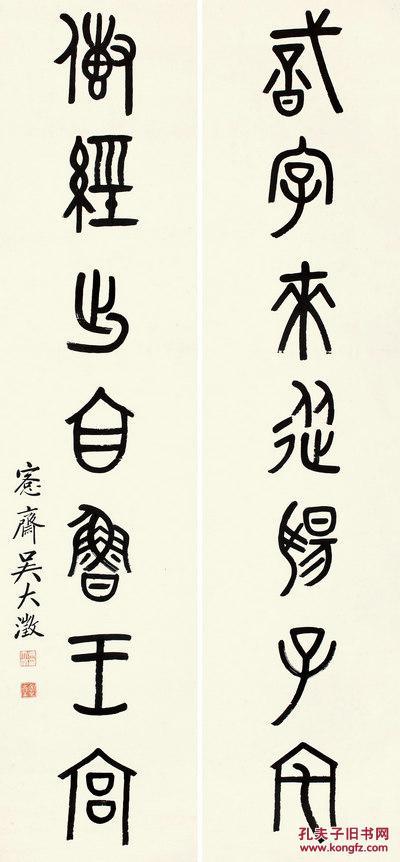 識字來從揚子宅
傳經出自魯王宮
愙齋吳大澂
孔夫子旧书网
www.kongfz.com